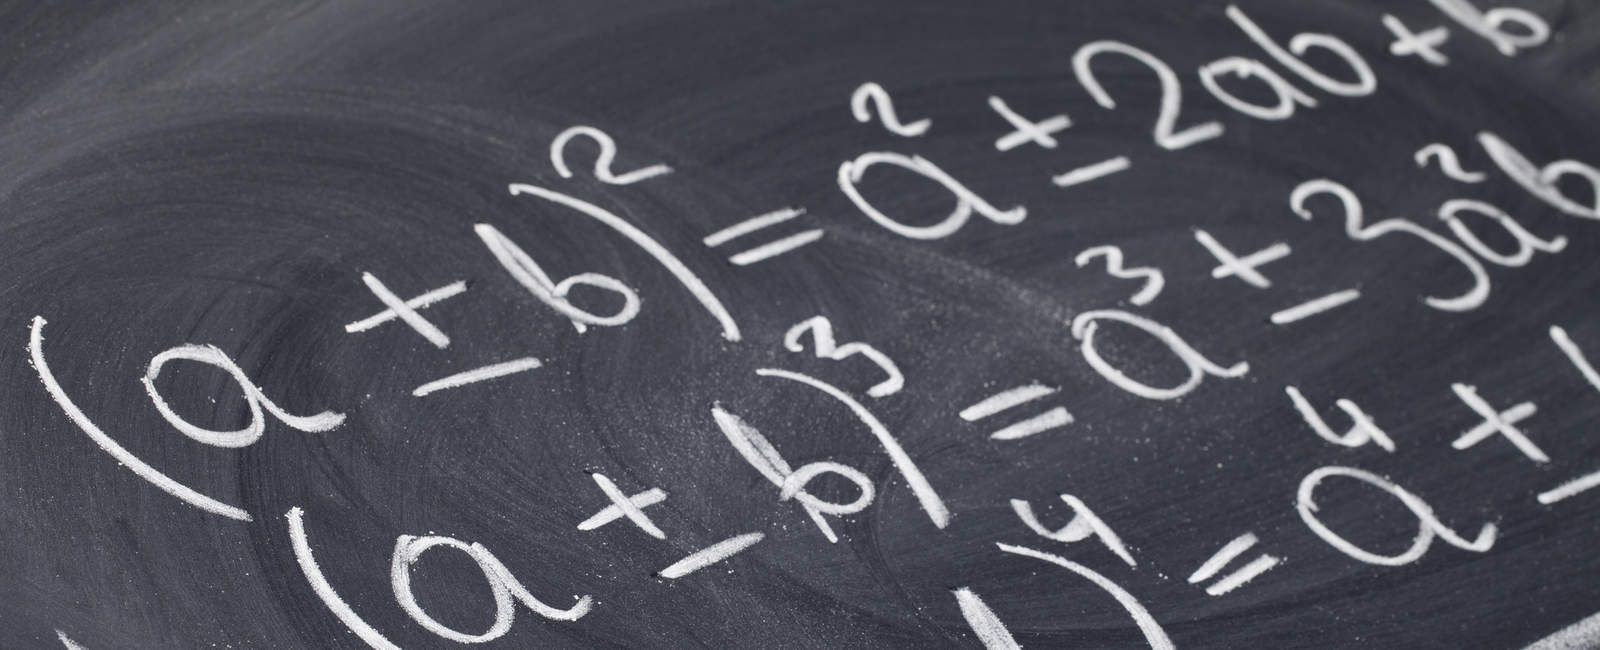 (a ± b)² = a² ± 2ab + b
(a ± b)³ = a³ ± 3a²b
)⁴ = a⁴ ±